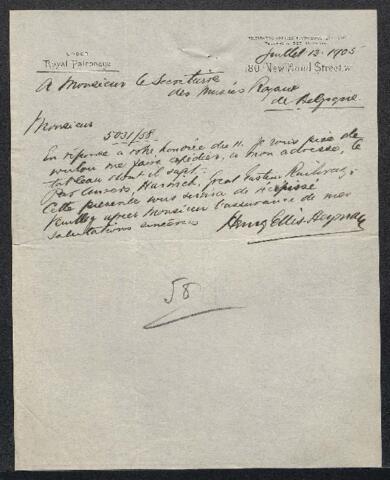 UNDER
Royal Patronage
Juillet 12. 1905
180 New Bond Street. W
A Monsieur le Secrétaire
des Musées Royaux
de Belgique
Monsieur
5031/58
En réponse à votre honorée du 11. Je vous prie de
vouloir me faire expédier, à mon adresse, le
tableau dont il s'agit:
Par Anvers, Harwich, Great Eastern Railway.
Cette présente vous servira de récépissé
Veuillez agréer Monsieur l'assurance de mes
salutations sincères
Henry Ellis
58